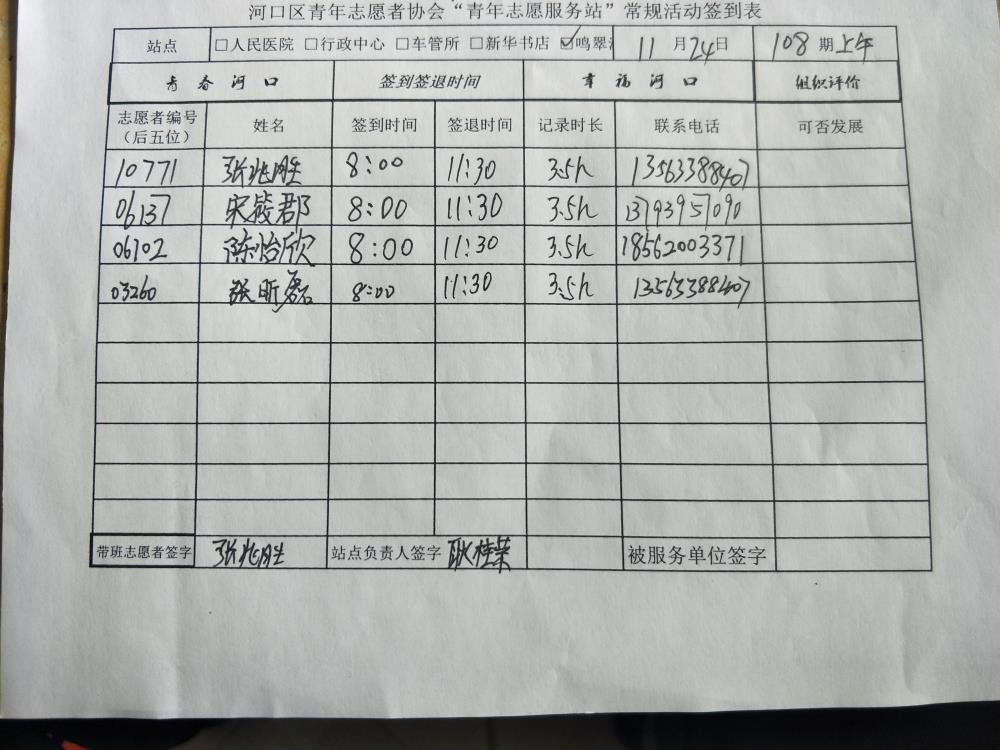 河口区青年志愿者协会“青年志愿服务站”常规活动签到表
站点 □人民医院 □行政中心 □车管所 □新华书店 ☑鸣翠 11月24日 108期上午
青春河口 签到签退时间 幸福河口 组织评价
志愿者编号（后五位） 姓名 签到时间 签退时间 记录时长 联系电话 可否发展
10771 张兆胜 8:00 11:30 3.5h 13563388407
06137 宋筱郡 8:00 11:30 3.5h 13793957090
06102 陈怡欣 8:00 11:30 3.5h 18562003371
03260 张昕磊 8:00 11:30 3.5h 13563388407
带班志愿者签字 张兆胜 站点负责人签字 耿桂荣 被服务单位签字